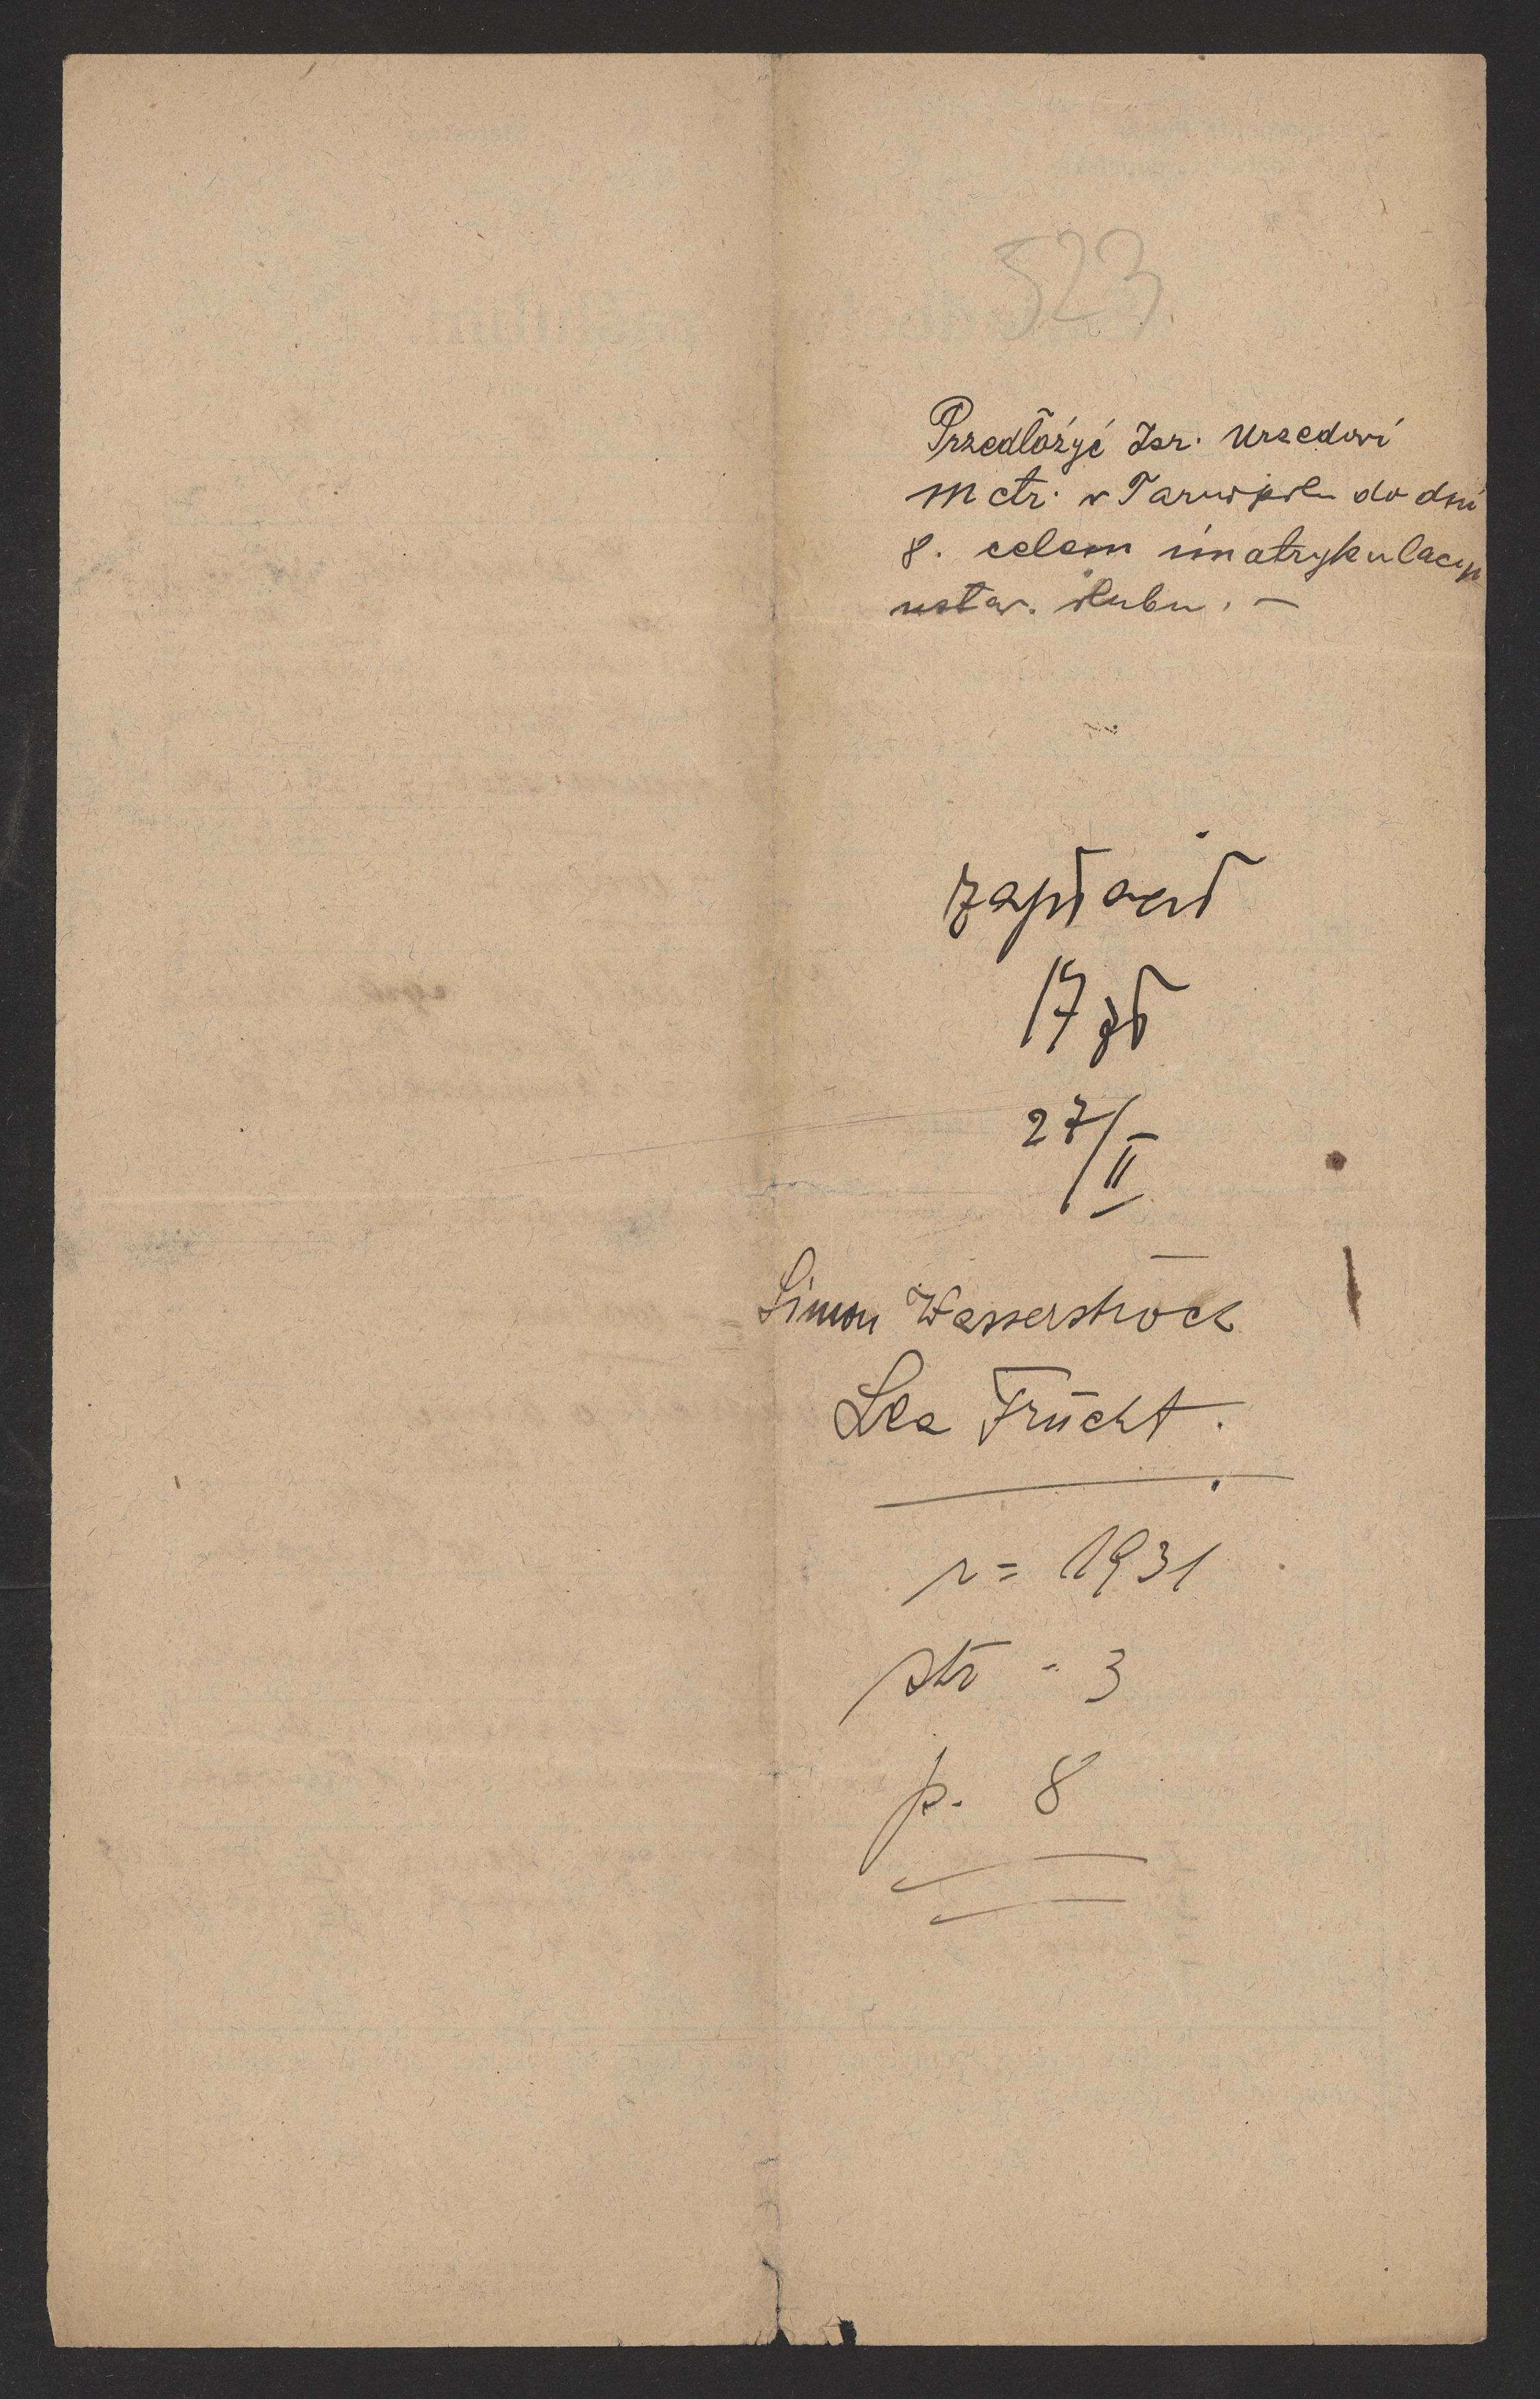 523
Przedłożyć Izr. Urzedowi
Metr. w Tarnopolu do dni
8. celem imatrykulacyi
ustaw. ślubu. —
zapłacił
17 zł
27/II
Simon Wasserströck
Lea Frücht.
r = 1931
str - 3
p. 8